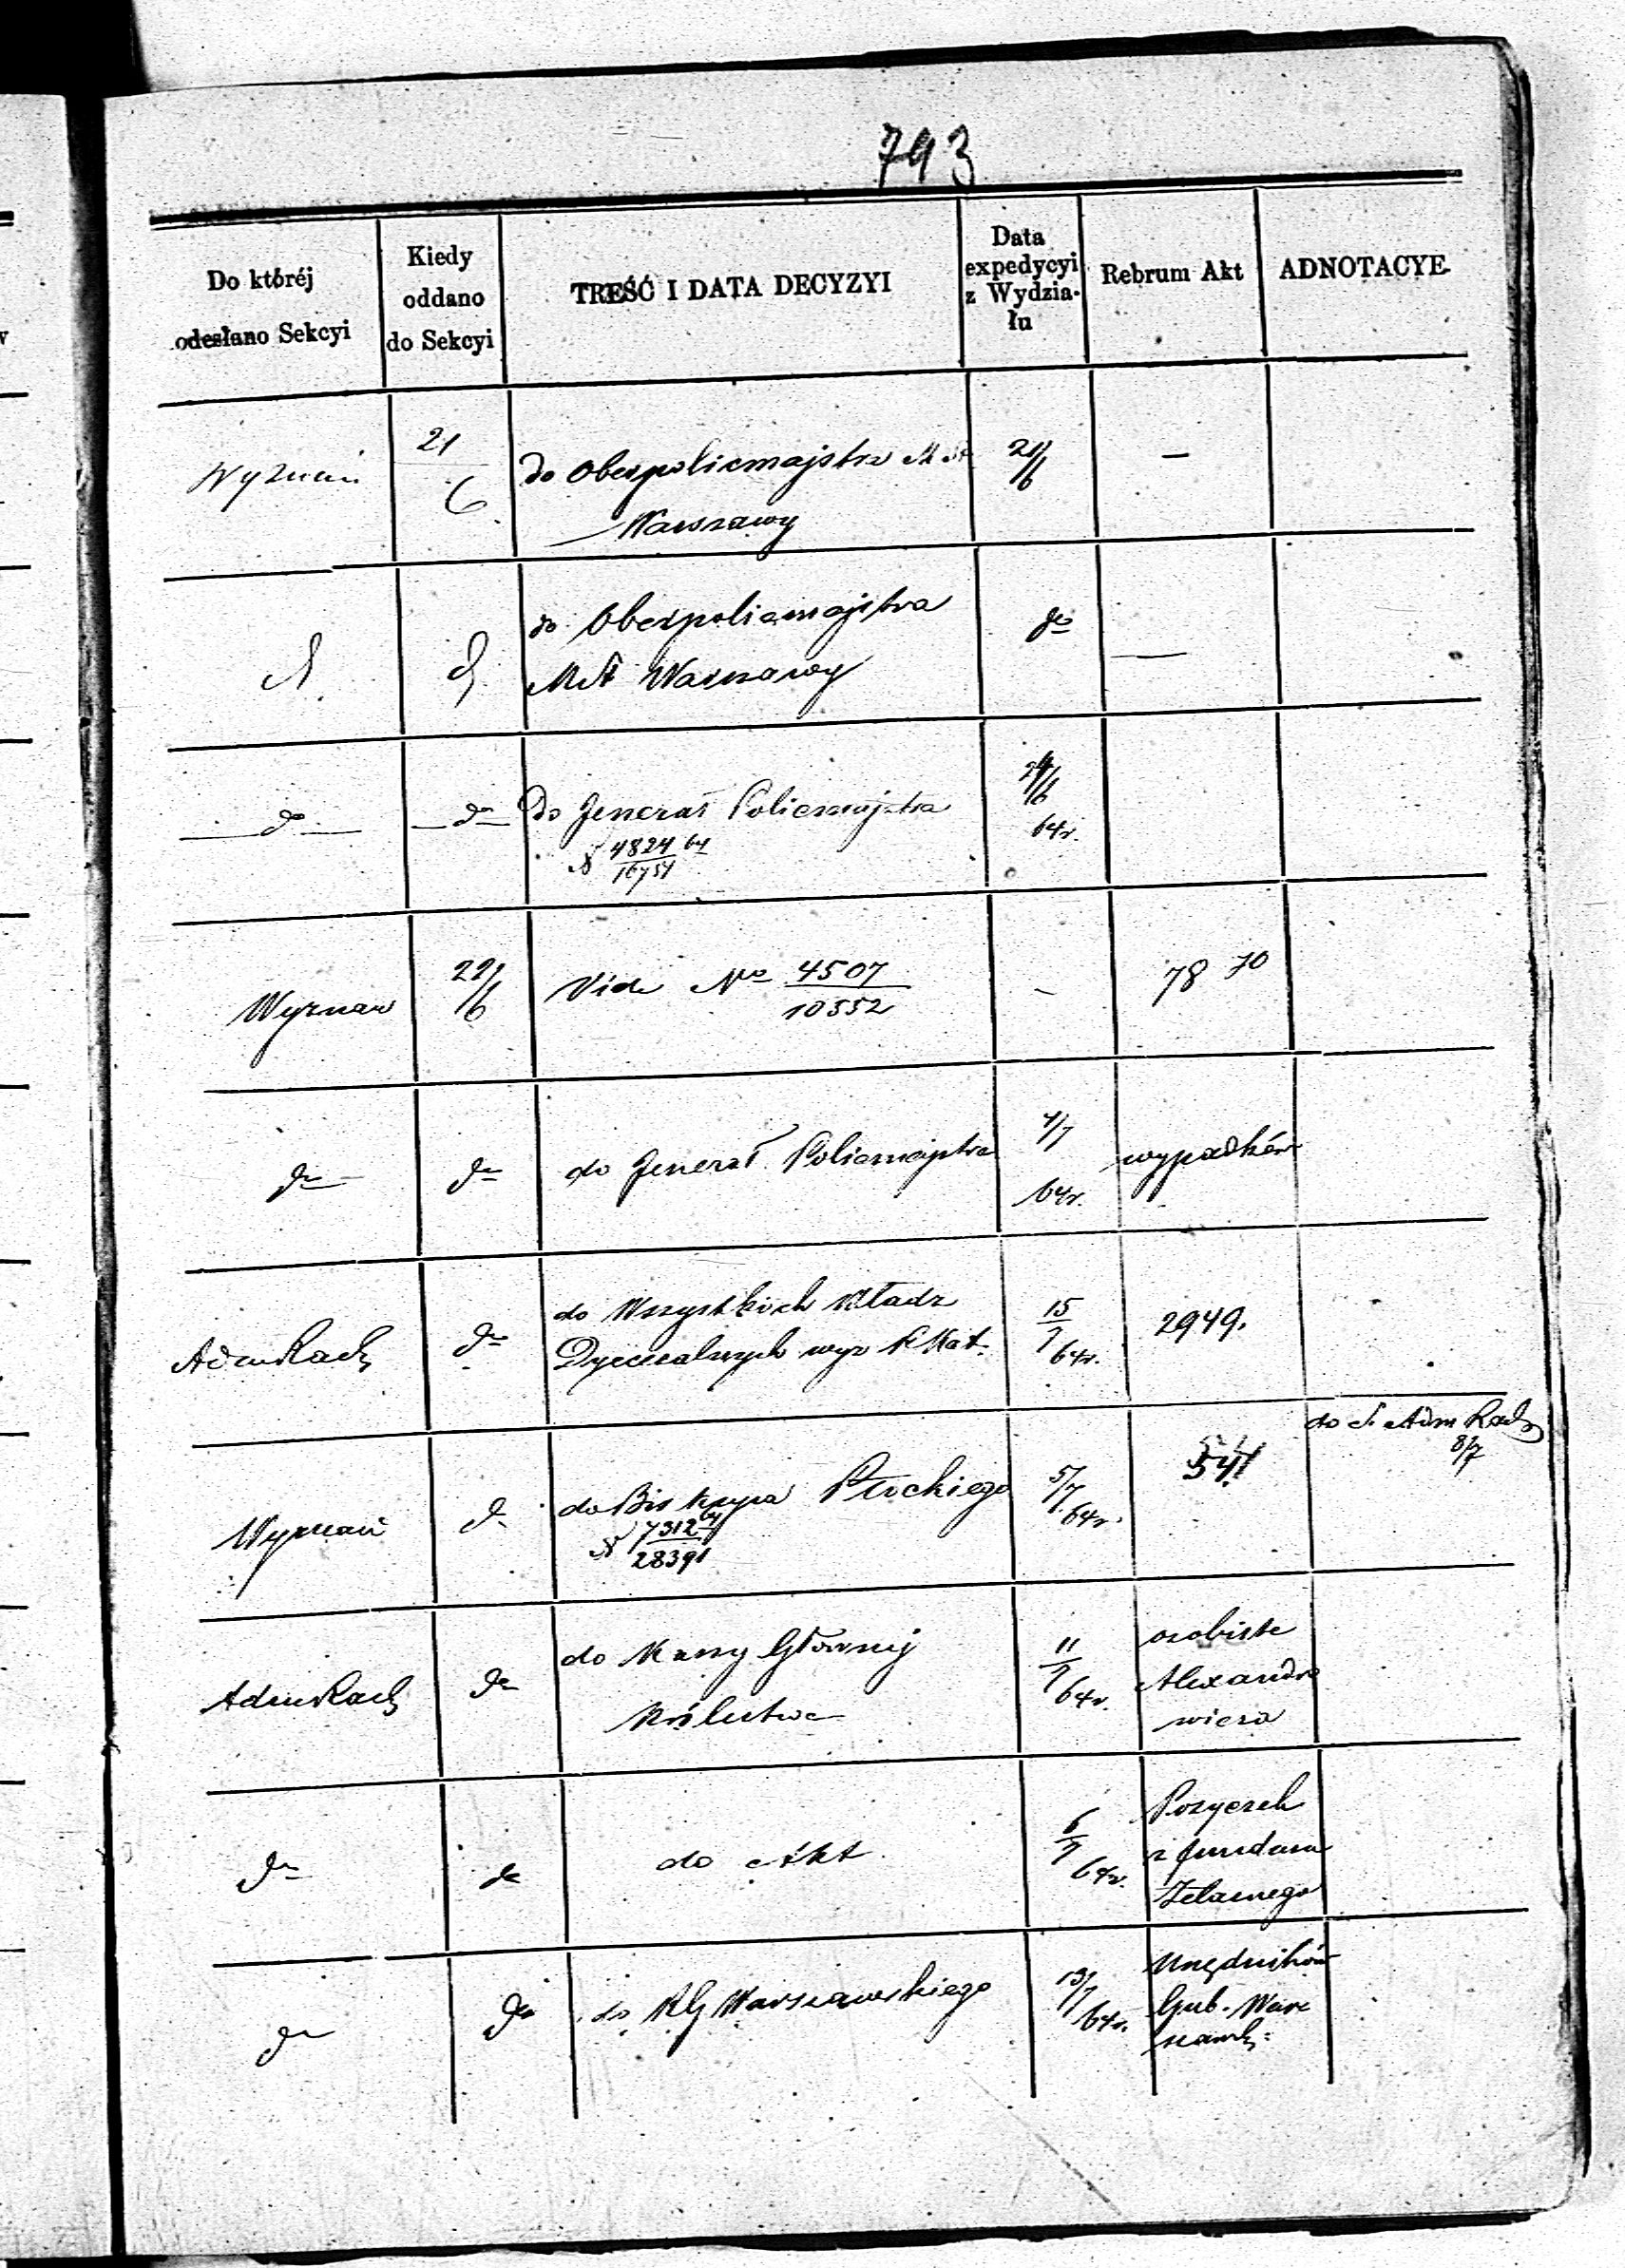 793
Do któréj
odesłano Sekcyi
Kiedy
oddano
do Sekcyi
TREŚĆ I DATA DECYZYI
Data
expedycyi
z Wydzia-
łu
Rebrum Akt
ADNOTACYE
Wyznań
21
6
do Oberpolicmajstra M St
Warszawy
21/6
—
do Oberpolicmajstra
M St Warszawy
do
—
do
do
Do Jenerał Policmajstra
N 4824 64
16751
24/6
64r.
Wyznań
22/6
Vide No 4507
10552
-
78 70
do
do
do Jenerał Policmajstra
4/7
64r.
wypadków
Adm Rach
do
do Wszystkich Władz
Dyecezalnych wyz R Kat.
15
7 64r.
2949.
Wyznań
do
do Biskupa Płockiego
N 7312 64
28391
5/7
64r.
541
do S. Adm Rach
8/7
Adm Rach
do
do Kassy Głównej
Królestwa
11
7 64r.
osobiste
Alexandro
wicza
do
do
do Akt
6
7
64r.
Pożyczek
z funduszu
Żelaznego
do
do
do RG Warszawskiego
13/7
64r.
Urzędników
Gub. Wars
zawsk: